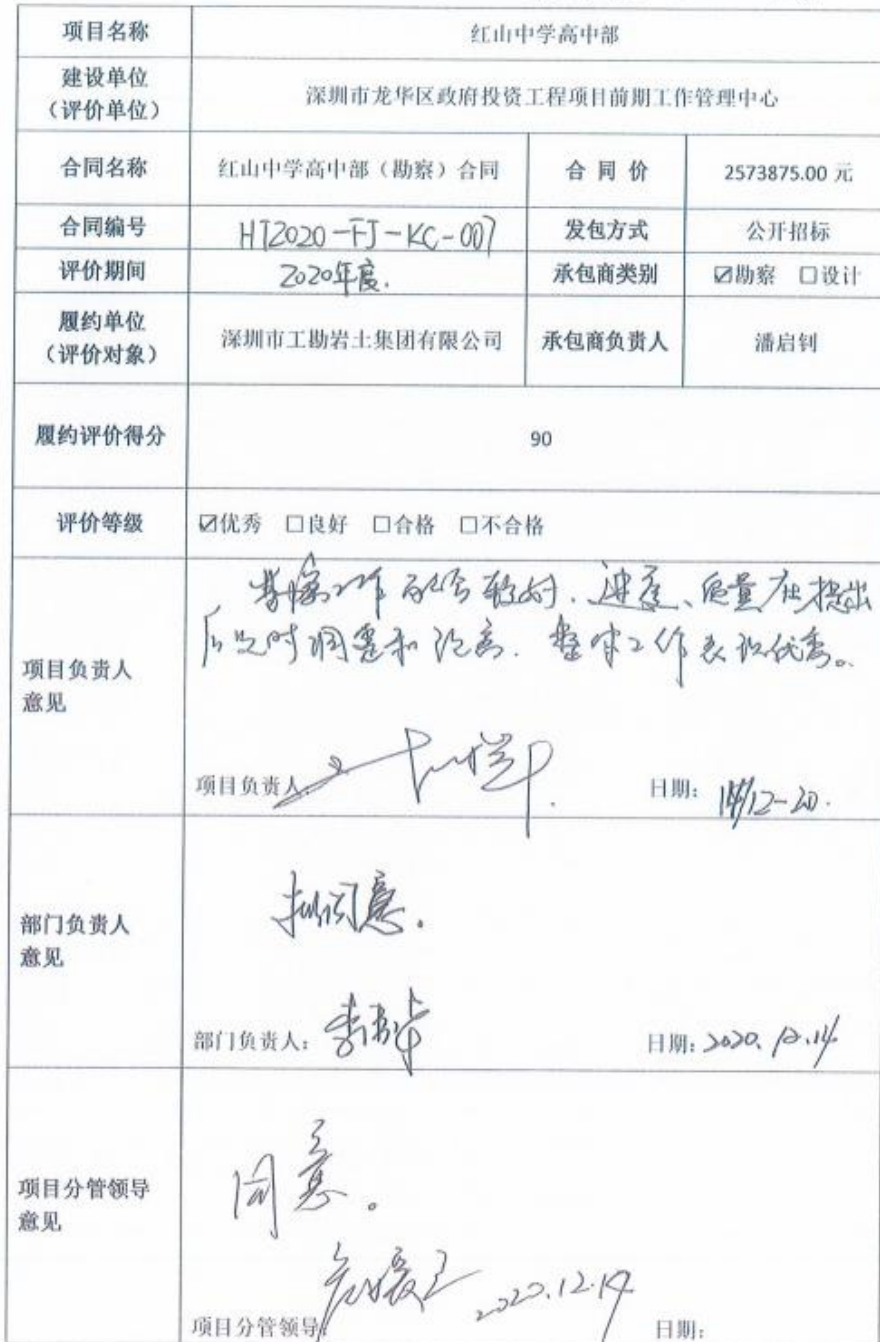 项目名称 红山中学高中部
建设单位
（评价单位） 深圳市龙华区政府投资工程项目前期工作管理中心
合同名称 红山中学高中部（勘察）合同 合同价 2573875.00 元
合同编号 HT2020-FJ-KC-007 发包方式 公开招标
评价期间 2020年度. 承包商类别 ☑勘察 □设计
履约单位
（评价对象） 深圳市工勘岩土集团有限公司 承包商负责人 潘启钊
履约评价得分 90
评价等级 ☑优秀 □良好 □合格 □不合格
工作配合较好、进度、质量在提出
后及时调整和 整体工作表现优秀。
项目负责人
意见
项目负责人: 日期: 12-20.
拟同意。
部门负责人
意见
部门负责人: 日期: 2020.12.14
同意。
项目分管领导
意见
2020.12.14
项目分管领导: 日期: